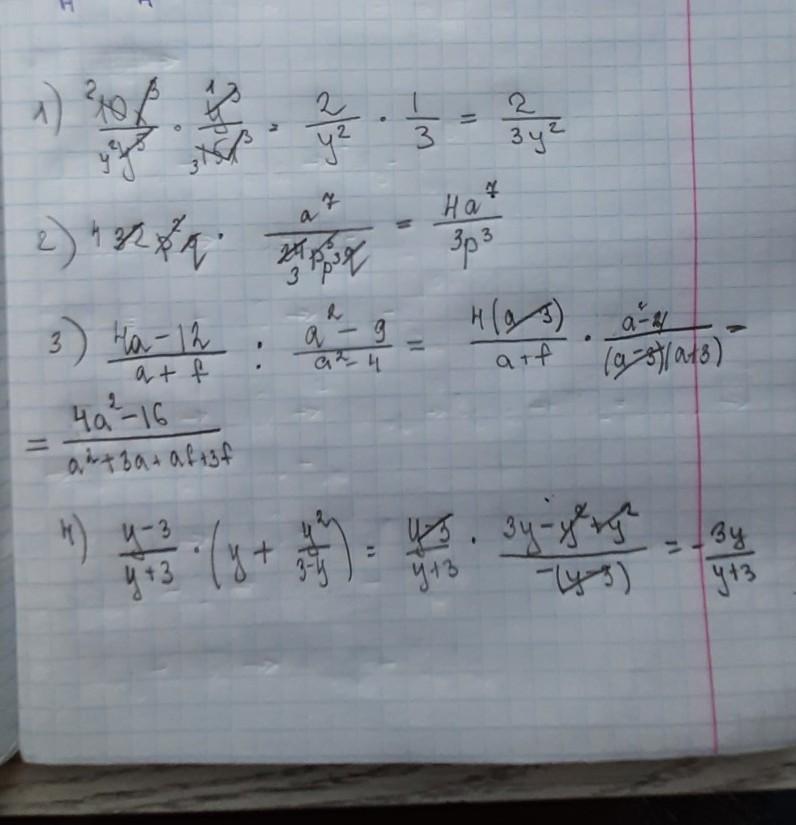 1) 10x³/y²y⁵ · y³/15x³ = 2/y² · 1/3 = 2/3y²
2) 4 32 p²q · a⁷/24p⁵q = 4a⁷/3p³
3) (4a-12)/(a+f) : (a²-9)/(a²-4) = 4(a-3)/(a+f) · (a²-4)/((a-3)(a+3)) =
= (4a²-16)/(a²+3a+af+3f)
4) (y-3)/(y+3) · (y + y²/(3-y)) = (y-3)/(y+3) · (3y-y²+y²)/(-(y-3)) = - 3y/(y+3)